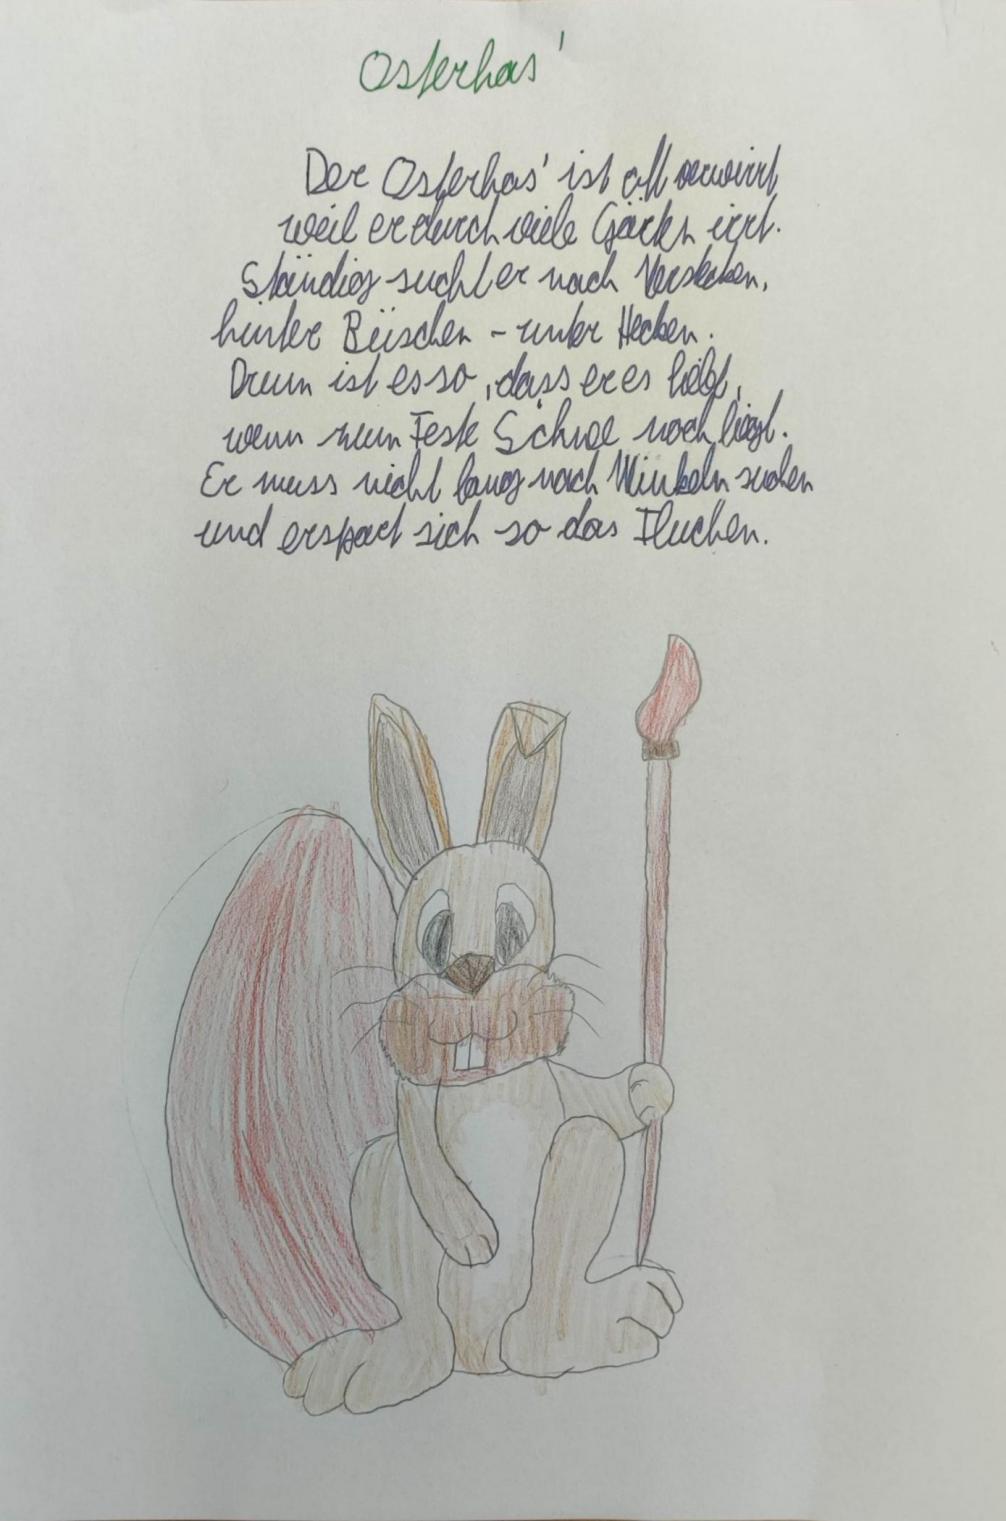 Osterhas'
Der Osterhas' ist oft verwirrt
weil er durch viele Gärten irrt.
Ständig sucht er nach Verstecken,
hinter Büschen - unter Hecken.
Drum ist es so, dass er es liebt,
wenn zum Feste Schnee noch liegt.
Er muss nicht lang nach Winkeln suchen
und erspart sich so das Fluchen.